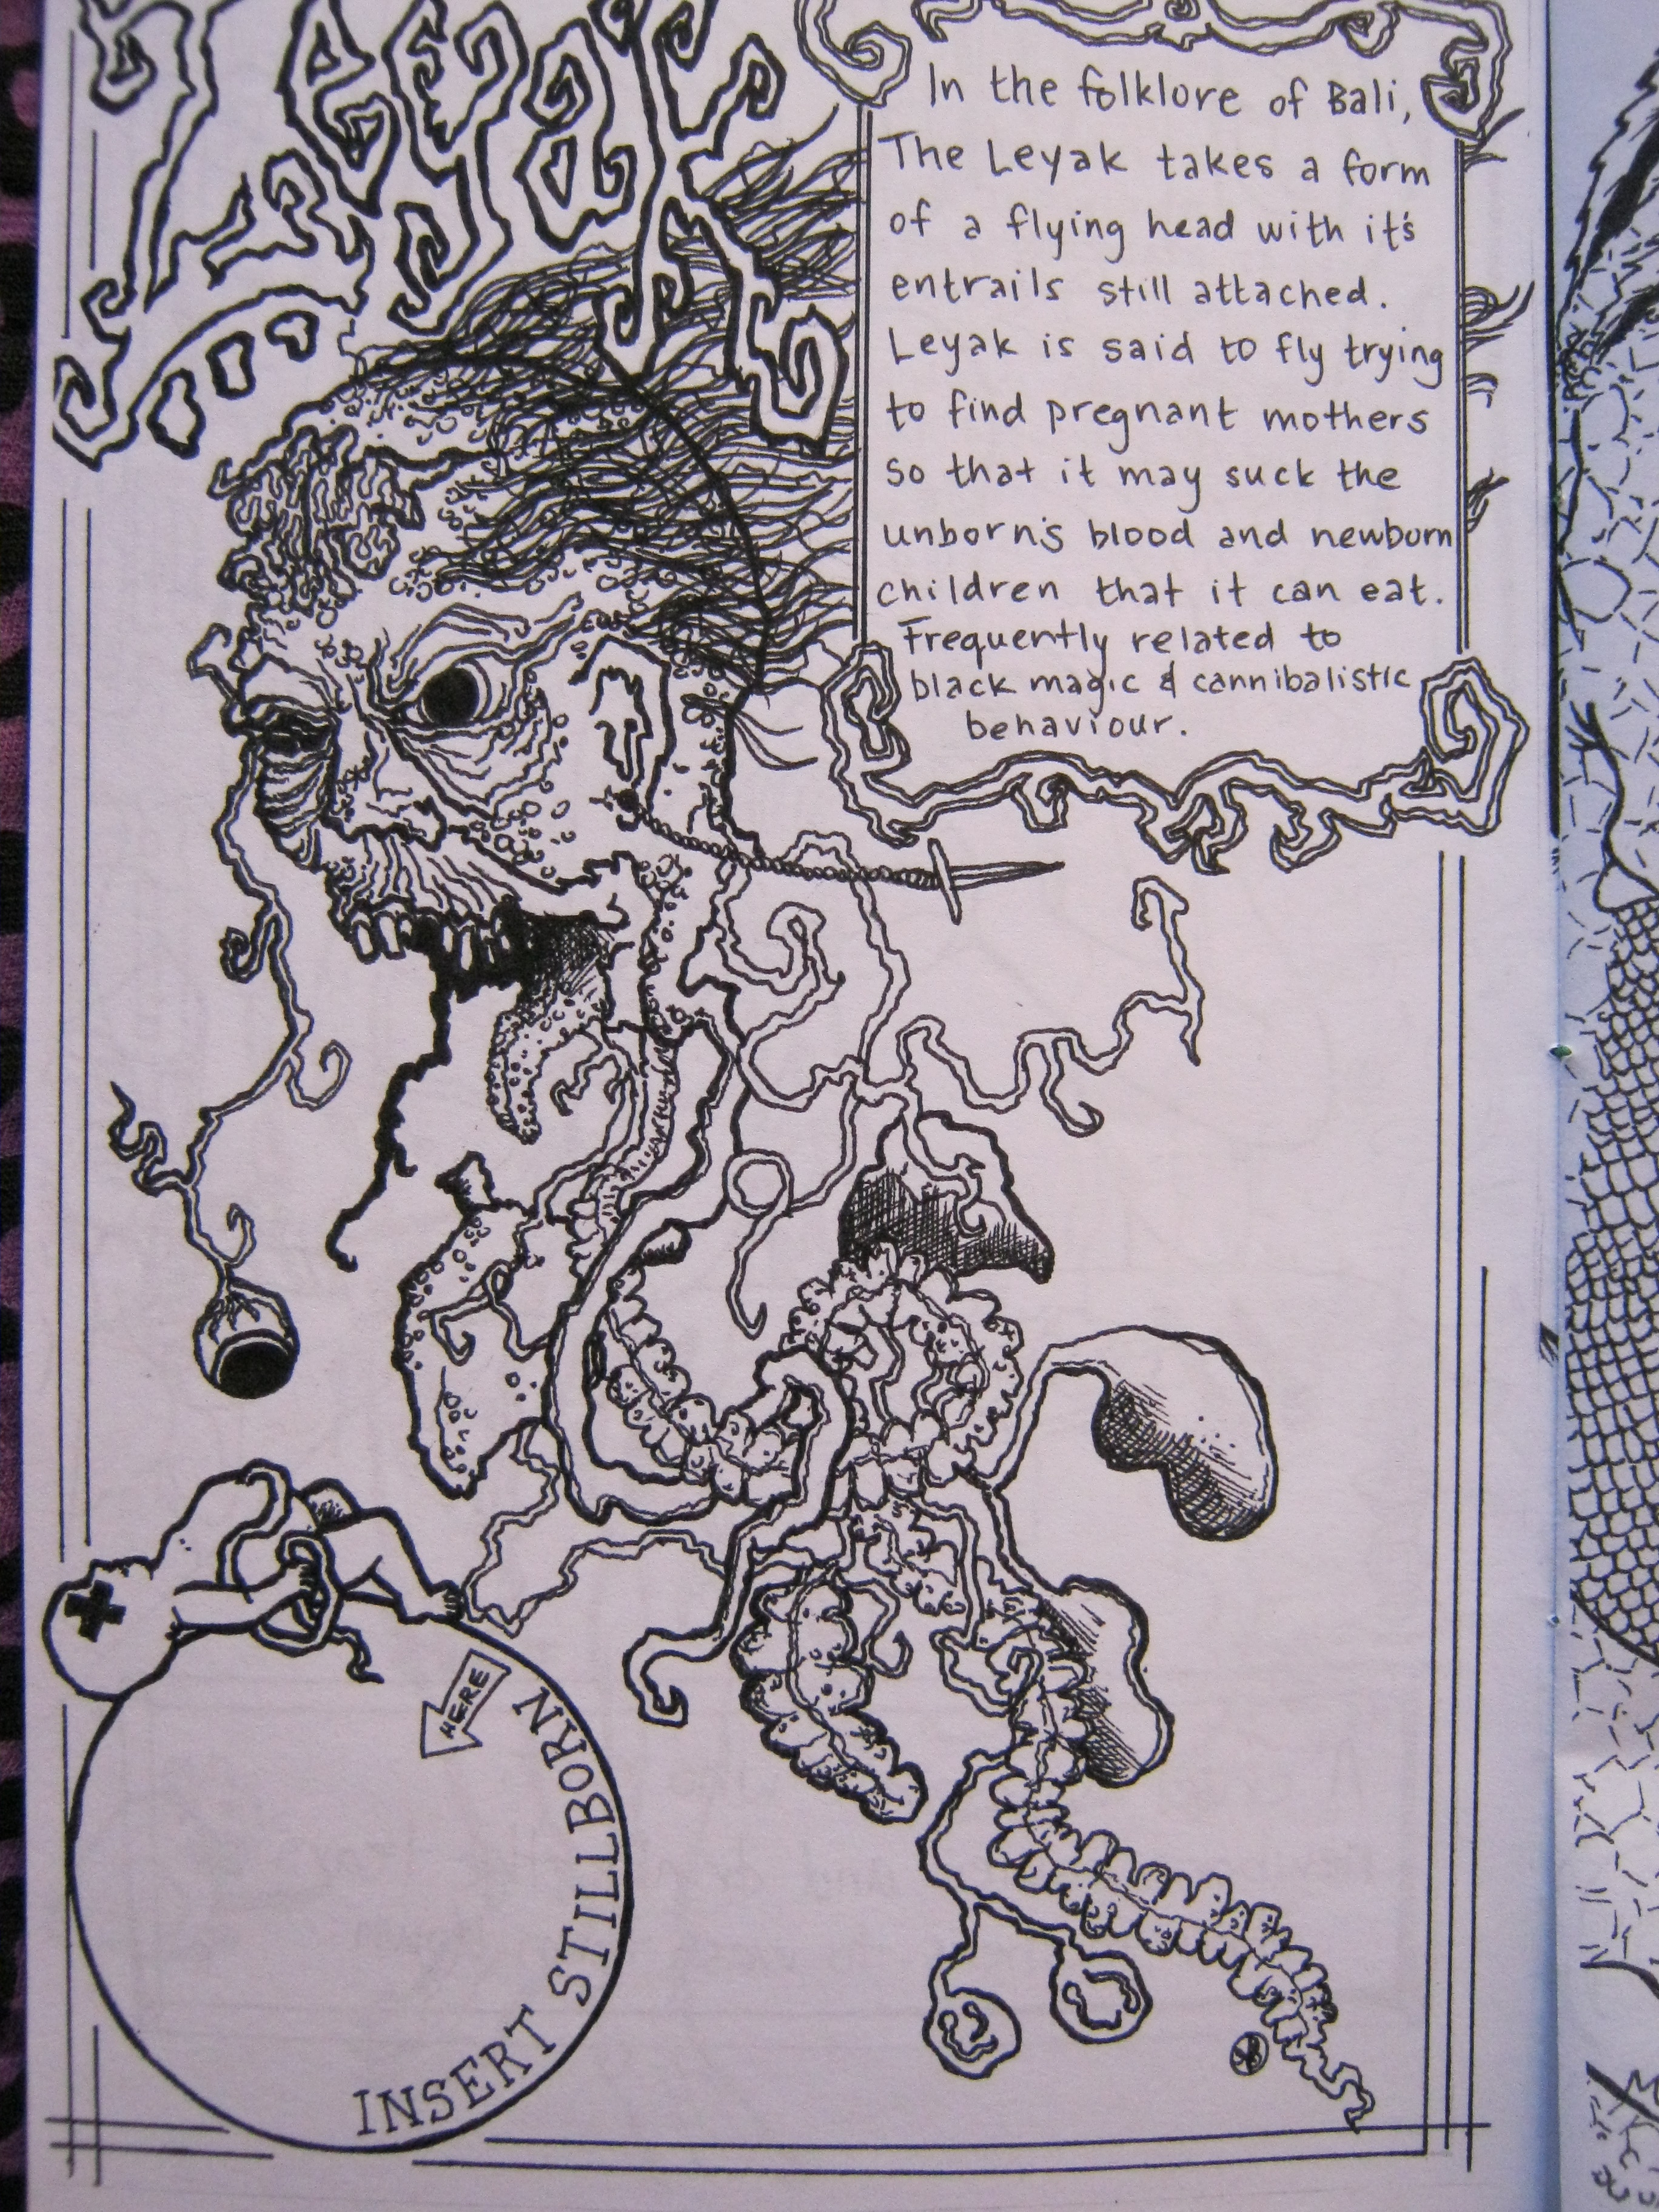 Leyak
In the folklore of Bali,
The Leyak takes a form
of a flying head with it's
entrails still attached.
Leyak is said to fly trying
to find pregnant mothers
so that it may suck the
unborn's blood and newborn
children that it can eat.
Frequently related to
black magic & cannibalistic
behaviour.
HERE
INSERT STILLBORN